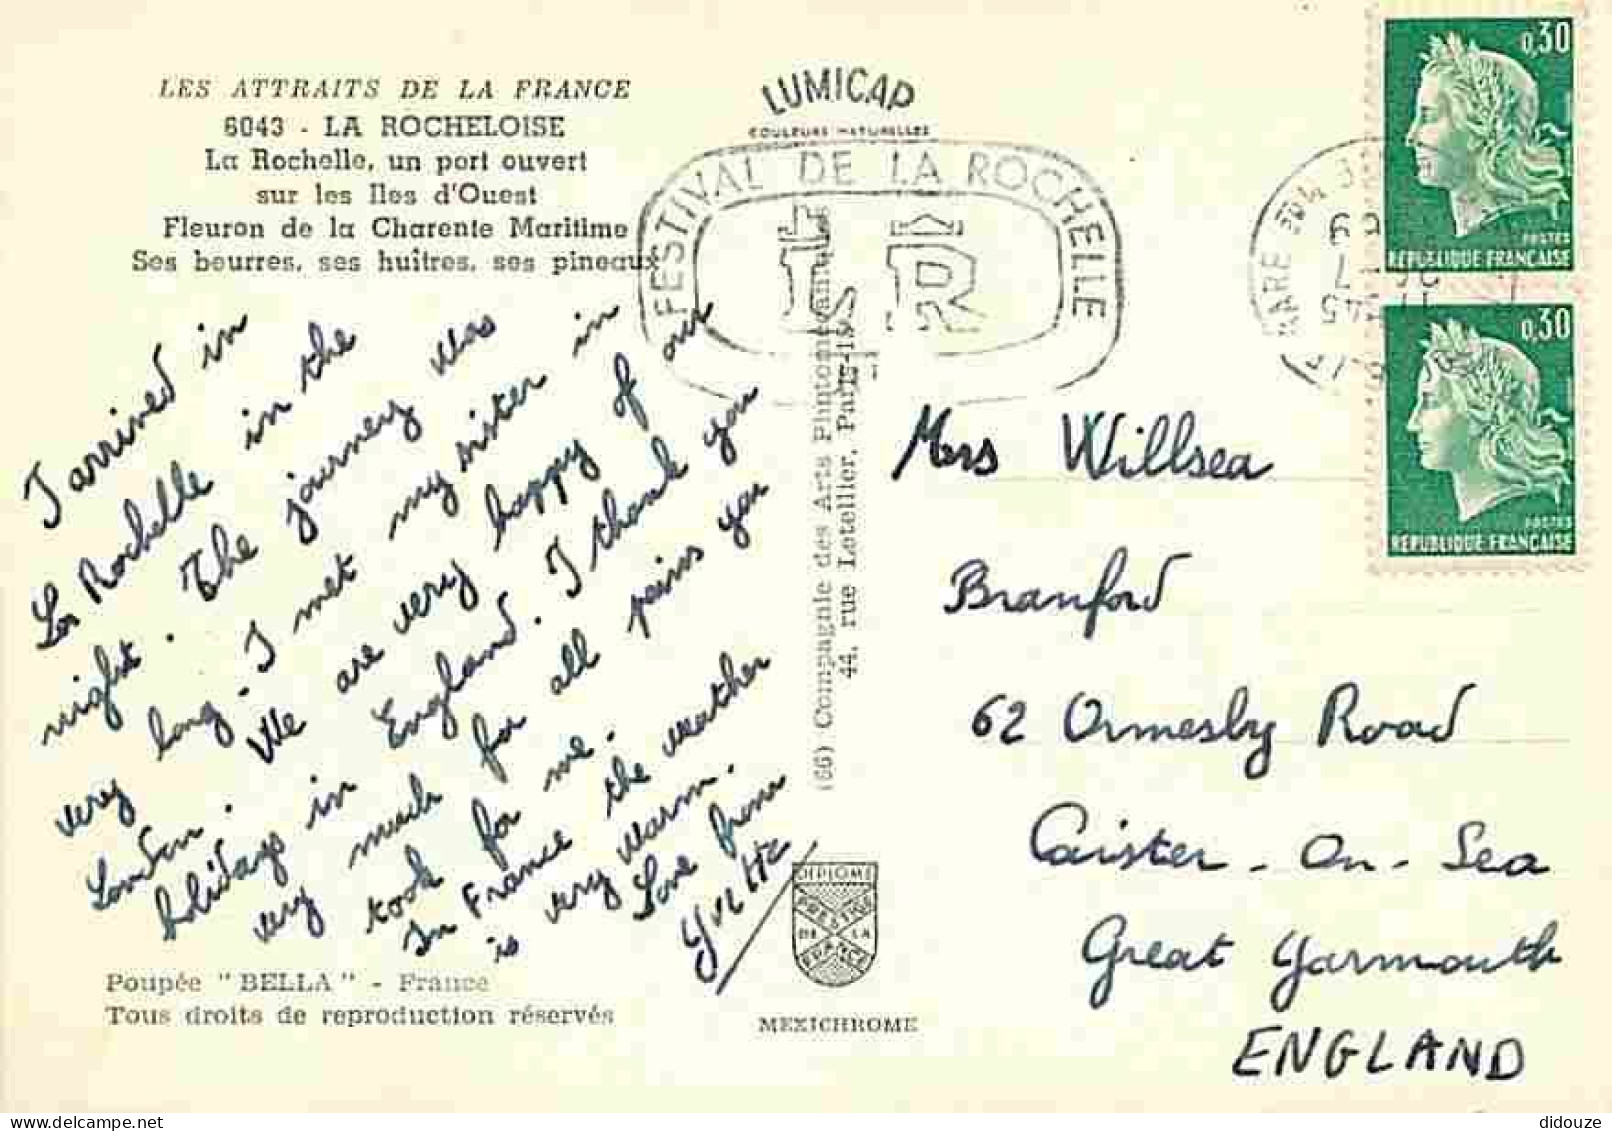 LES ATTRAITS DE LA FRANCE
6043 - LA ROCHELOISE
La Rochelle, un port ouvert
sur les Iles d'Ouest
Fleuron de la Charente Maritime
Ses beurres, ses huitres, ses pineaux
I arrived in
La Rochelle in the
night. The journey was
very long. I met my sister in
London. We are very happy of our
holidays in England. I thank you
very much for all pains you
took for me.
In France the weather
is very warm.
Love from
Yvette
Poupée "BELLA" - France
Tous droits de reproduction réservés
LUMICAP
COULEURS NATURELLES
FESTIVAL DE LA ROCHELLE
LR
(66) Compagnie des Arts Photomécaniques
44, rue Letellier, Paris-15
DIPLOME
PRESTIGE
DE LA
FRANCE
MEXICHROME
0,30
POSTES
REPUBLIQUE FRANÇAISE
0,30
POSTES
REPUBLIQUE FRANÇAISE
Mers Willsea
Branford
62 Ormesby Road
Caister - On - Sea
Great Yarmouth
ENGLAND
didouze